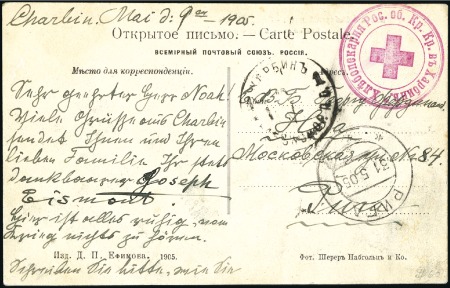 Charbin. Mai d. 9ten 1905.
Открытое письмо. — Carte Postale.
ВСЕМІРНЫЙ ПОЧТОВЫЙ СОЮЗЪ. РОССІЯ.
Мѣсто для корреспонденціи.
Sehr geehrter Herr Noah!
Viele Grüsse aus Charbin
sendet Ihnen und Ihrer
lieben Familie Ihr stets
dankbarer Joseph
Eismont.
Hier ist alles ruhig, vom
Krieg nichts zu hören.
Schreiben Sie bitte, wie Sie
Изд. Д. П. Ефимова. 1905.
Рос. об. Кр. Кр. въ Харбинѣ
ХАРБИНЪ
Ноа
Московская № 84.
Рига
РИГА
5.05
Фот. Шереръ Набгольцъ и Ко.